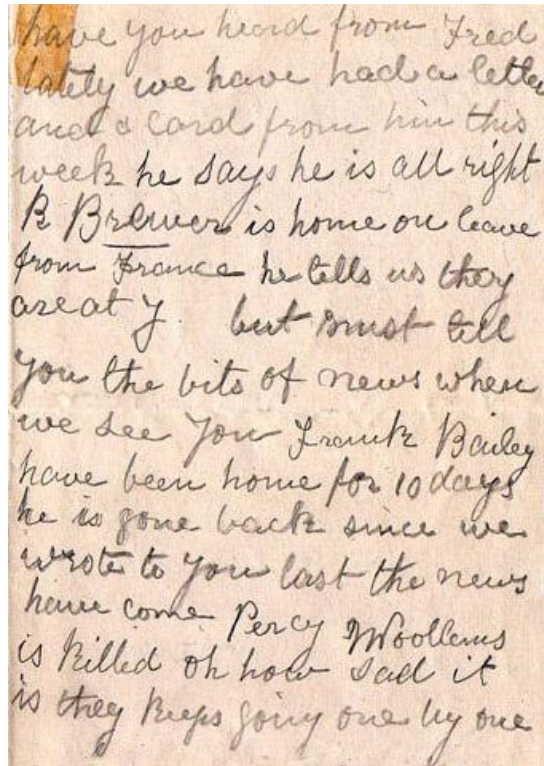 have you heard from Fred
lately we have had a letter
and a card from him this
week he says he is all right
B Brewer is home on leave
from France he tells us they
are at Y. but must tell
you the bits of news when
we see you Frank Bailey
have been home for 10 days
he is gone back since we
wrote to you last the news
have come Percy Woollems
is killed oh how sad it
is they keeps going one by one